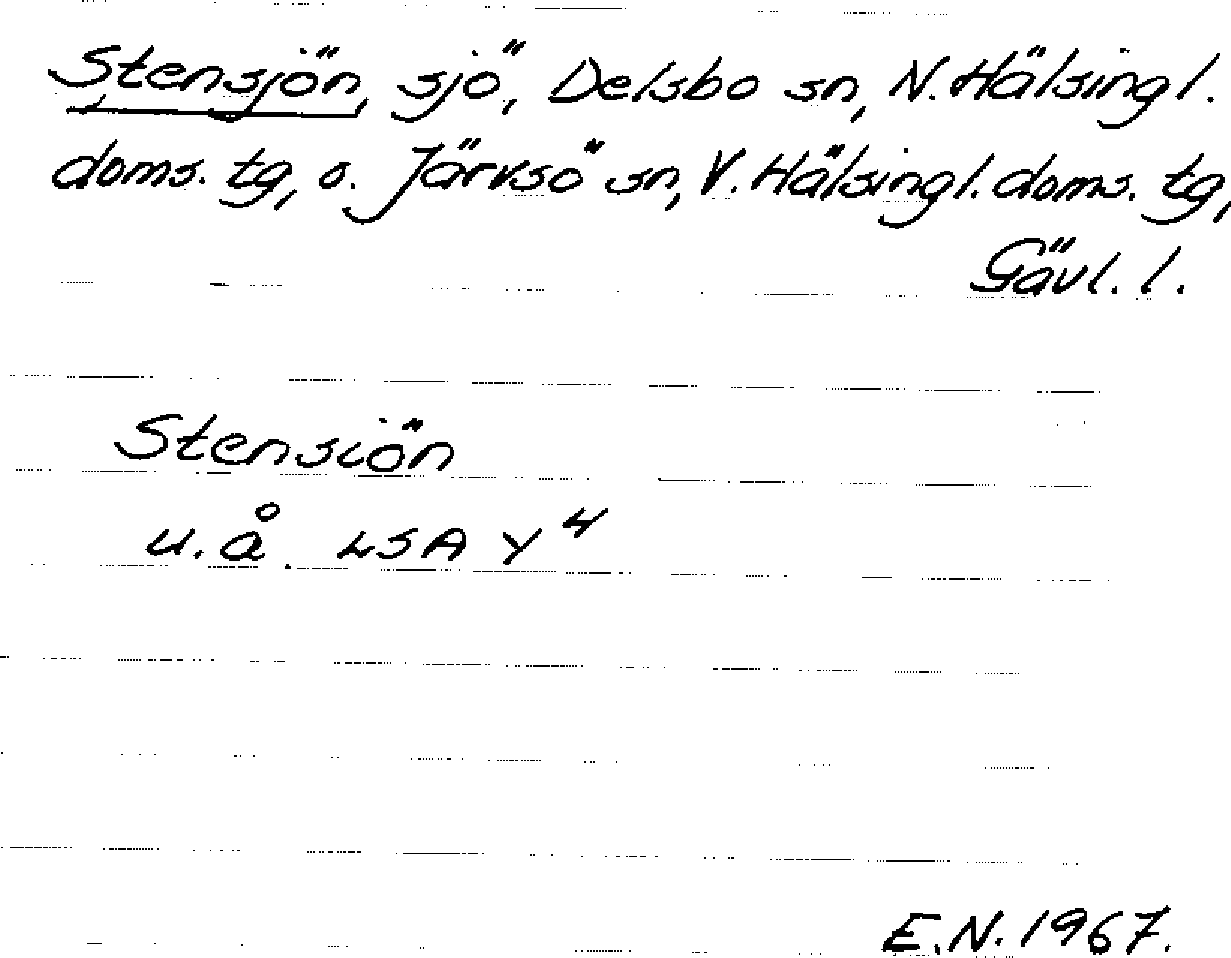 Stensjön, sjö, Delsbo sn, N. Hälsingl.
doms. tg, o. Järvsö sn, V. Hälsingl. doms. tg,
Gävl. l.
Stensiön
u.å. LSA Y 4
E.N. 1967.